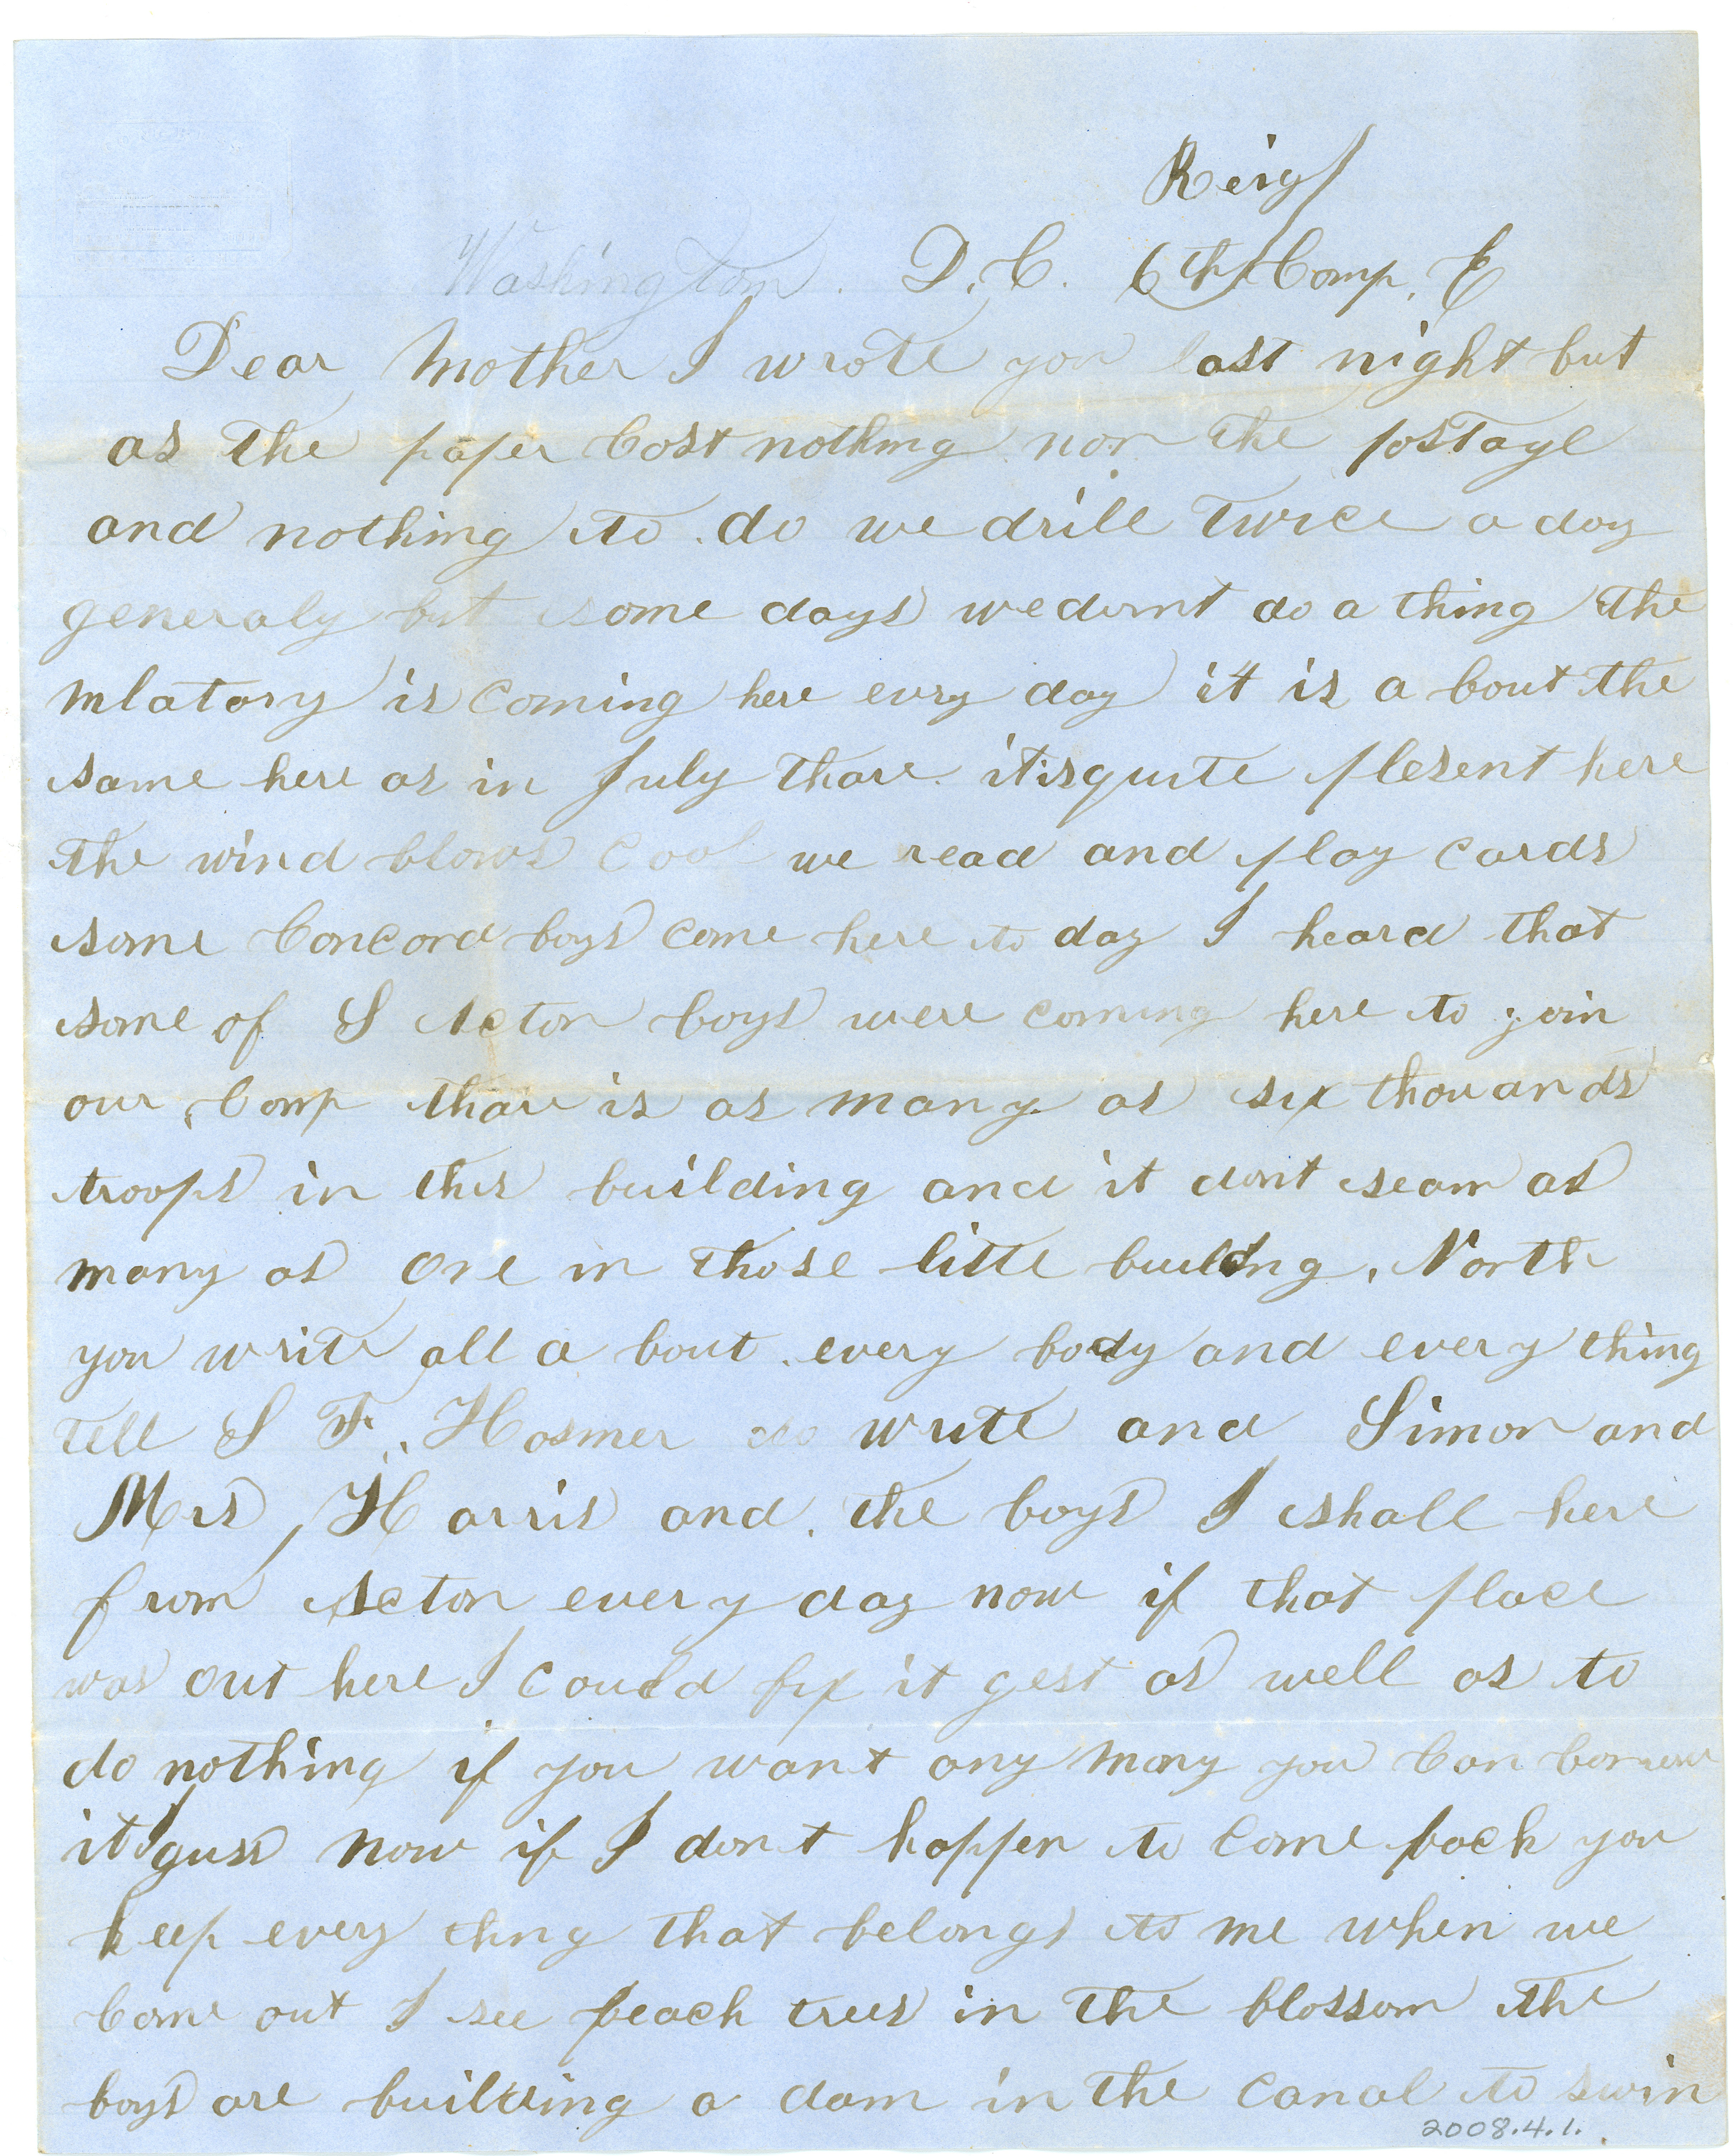 Reig
Washington. D. C. 6th Comp. E
Dear Mother I wrote you last night but
as the paper Cost nothing nor the postage
and nothing to do we drill twice a day
generaly but some days we dornt do a thing the
mlatary is coming here evry day it is a bout the
same here as in July thare. itisquite plesent here
the wind blows Cool we read and play cards
some Concord boys come here to day I heard that
some of S Acton boys were coming here to join
our Comp thare is as many as six thouands
troops in this building and it dont seam as
many as one in those little building. North
you write all a bout every body and every thing
tell S F. Hosmer to write and Simon and
Mrs, Harris and the boys I shall here
from Acton every day now if that place
was out here I could fix it gest as well as to
do nothing if you want any mony you Can borrow
it I guss now if I don't happen to come back you
keep every thng that belongs to me when we
Come out I see peach trees in the blossom the
boys are building a dam in the canal to swim
2008.4.1.